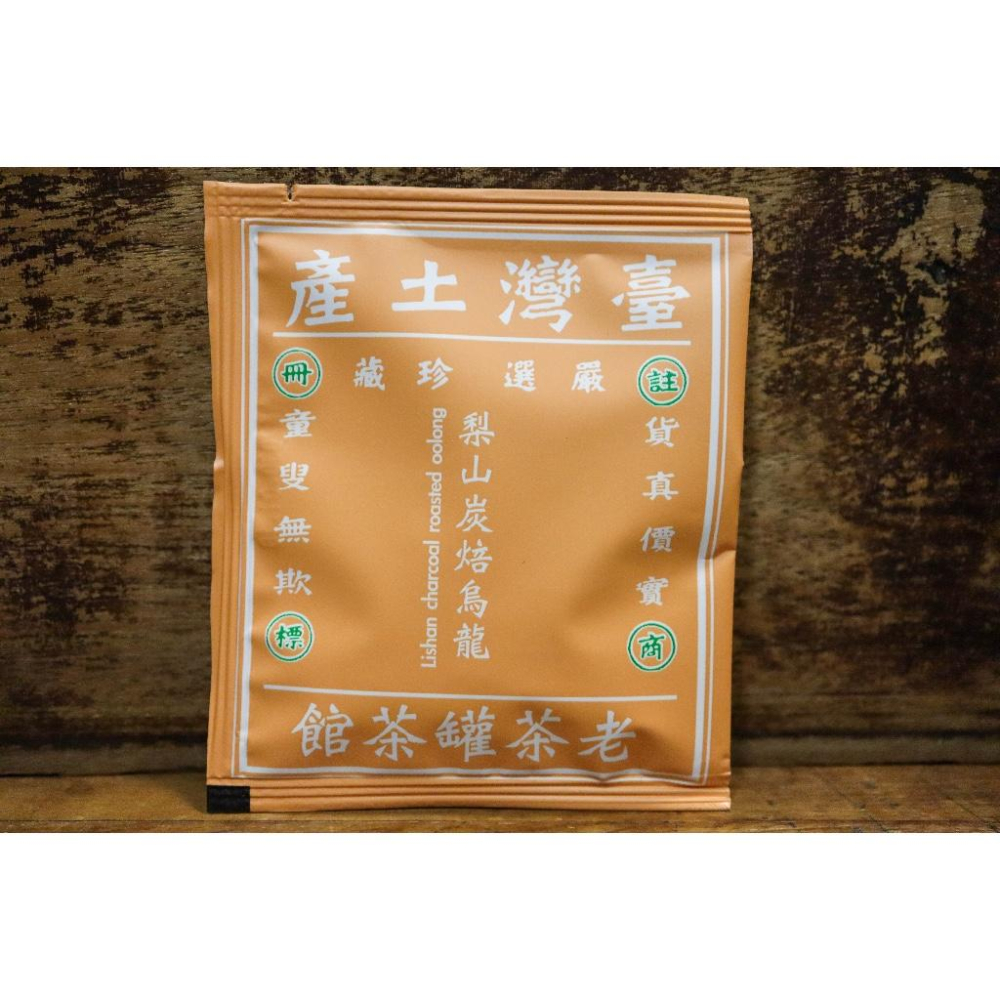 臺灣土產
嚴選珍藏
註
冊
商
標
貨真價實
梨山炭焙烏龍
Lishan charcoal roasted oolong
童叟無欺
老茶罐茶館